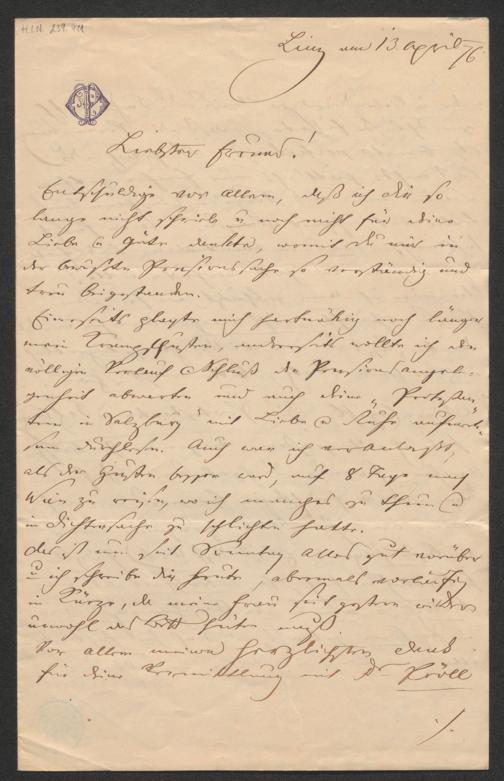 H.I.N. 239.971
Linz am 13 April 76
Liebster Freund!
Entschuldige vor Allem, daß ich dir so
lange nicht schrieb u noch nicht für deine
Liebe u Güte dankte, womit du mir in
der bewußten Pensionssache so verständig und
treu beigestanden.
Einerseits plagte mich hartnäckig noch länger
mein Krampfhusten, anderseits wollte ich den
völligen Verlauf u Schluß der Pensionsangele-
genheit abwarten und auch deine „Protestan-
ten in Salzburg" mit Liebe u Ruhe aufmerk-
sam durchlesen. Auch war ich veranlaßt,
als der Husten besser ward, auf 8 Tage nach
Wien zu reisen, wo ich manches zu thun u
in Dichtersache zu schlichten hatte.
Das ist nun seit Sonntag Alles gut vorüber
u ich schreibe dir heute, abermals vorläufig
in Kürze, da meine Frau seit gestern wieder
unwohl das Bett hüten muß.
Vor allem meinen herzlichsten Dank
für deine Vermittlung mit Dr Pröll
./.